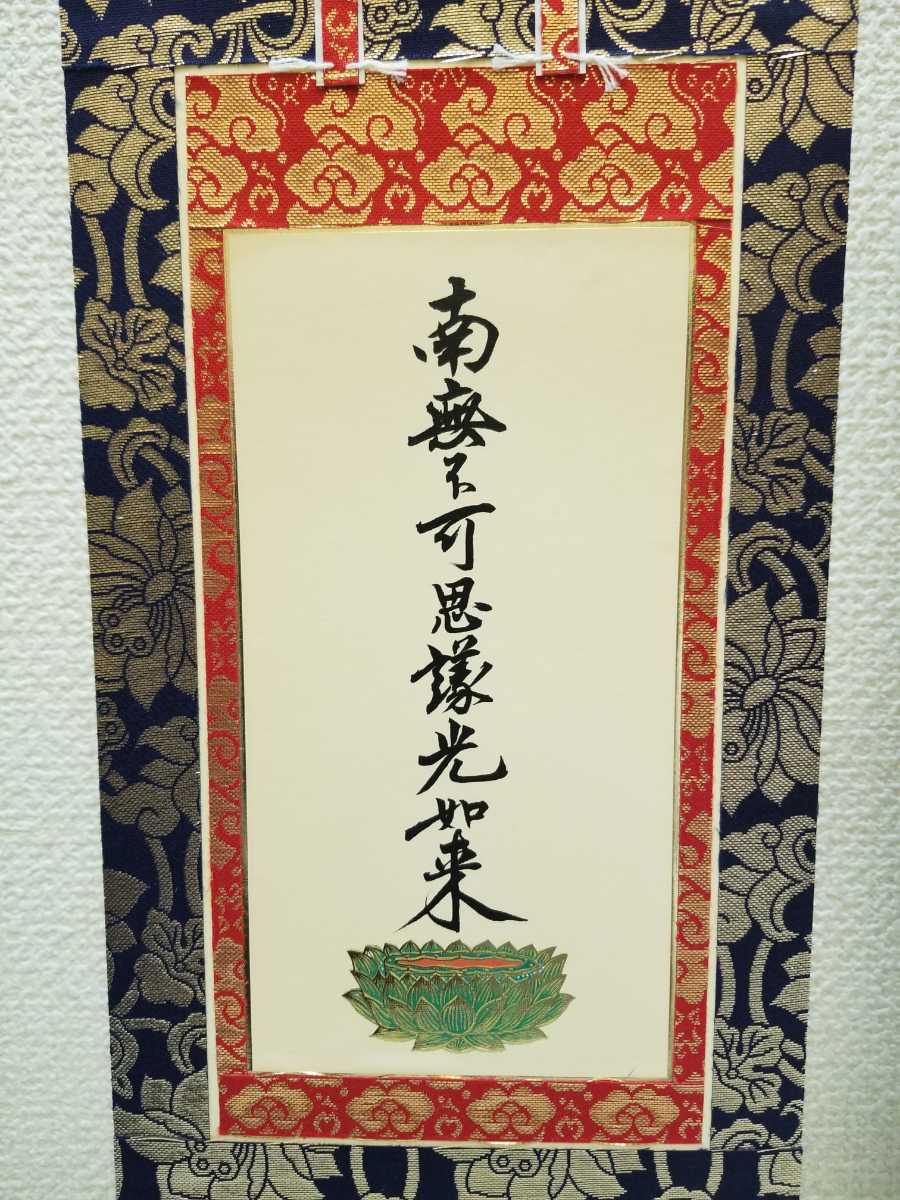 南無不可思議光如来